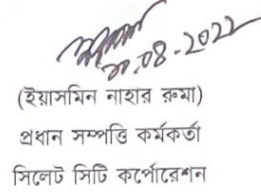 .08.2022
(ইয়াসমিন নাহার রুমা)
প্রধান সম্পত্তি কর্মকর্তা
সিলেট সিটি কর্পোরেশন